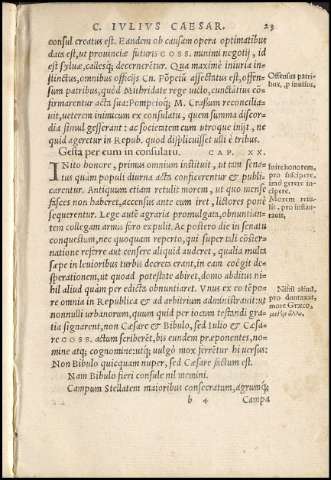 C. IVLIVS CAESAR. 23
consul creatus est. Eandem ob causam opera optimatibus
data est, ut prouinciæ futuris COSS. minimi negotij, id
est syluæ, callesq; decernerẽtur. Qua maxime iniuria in-
stinctus, omnibus officijs Cn. Põpeiũ assectatus est, offen-
sum patribus, quòd Mithridate rege uicto, cunctatius cõ-
firmarentur acta sua: Pompeioq; M. Crassum reconcilia-
uit, ueterem inimicum ex consulatu, quem summa discor-
dia simul gesserant: ac societatem cum utroque inijt, ne
quid ageretur in Repub. quod displicuisset ulli è tribus.
Gesta per eum in consulatu. CAP. XX.
INito honore, primus omnium instituit, ut tam sena-
tus quàm populi diurna acta conficerentur & publi-
carentur. Antiquum etiam retulit morem, ut quo mense
fasces non haberet, accensus ante eum iret, lictores ponè
sequerentur. Lege autẽ agraria promulgata, obnuntian-
tem collegam armis foro expulit. Ac postero die in senatu
conquestum, nec quoquam reperto, qui super tali cõster-
natione referre aut censere aliquid auderet, qualia multa
sæpe in leuioribus turbis decreta erant, in eam coëgit de-
sperationem, ut quoad potestate abiret, domo abditus ni-
hil aliud quàm per edicta obnuntiaret. Vnus ex eo tẽpo
re omnia in Republica & ad arbitrium administrauit: ut
nonnulli urbanorum, quum quid per iocum testandi gra-
tia signarent, non Cæsare & Bibulo, sed Iulio & Cæsa-
re COSS. actum scriberẽt, bis eundem præponentes, no-
mine atq; cognomine: utq; uulgò mox ferrẽtur hi uersus:
Non Bibulo quicquam nuper, sed Cæsare factum est.
Nam Bibulo fieri consule nil memini.
Campum Stellatem maioribus consecratum, agrumq;
b 4 Campa
Offensum patri-
bus, p inuisus.
Inire honorem,
pro suscipere,
imò gerere in-
cipere.
Morem retu-
lit, pro instau-
rauit.
Nihil aliud,
pro duntaxat,
more Græco,